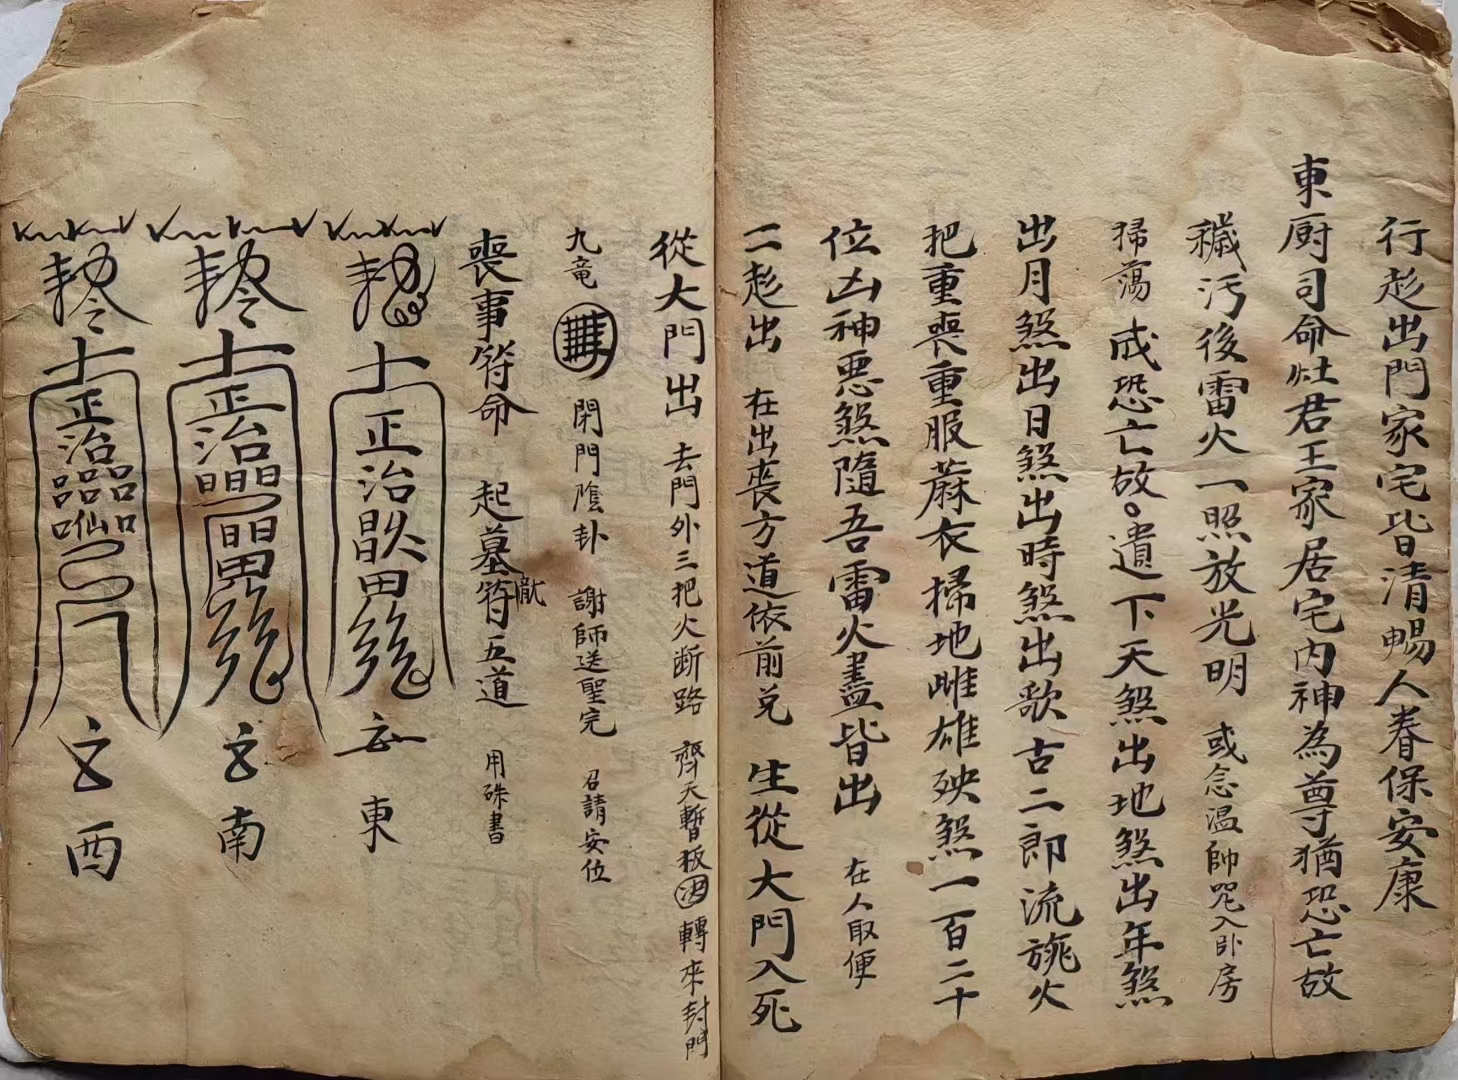 行趂出門家宅皆清暢人眷保安康
東厨司命灶君王家居宅內神為尊猶恐亡故
穢污後雷火一照放光明 或念温帥咒入卧房
掃蕩 或恐亡故。遺下天煞出地煞出年煞
出月煞出日煞出時煞出歌古二郎流旎火
把重喪重服蔴衣掃地雌雄殃煞一百二十
位凶神悪煞隨吾雷火盡皆出 在人取便
二趂出 在出喪方道依前兑 生從大門入死
從大門出 去門外三把火断路 齊天暫板 轉來封門
九竜 閉門隂卦 謝師送聖完 召請安位
喪事符命 起墓符五道 用硃書
正治 田 東
正治 南
正治 仙 西